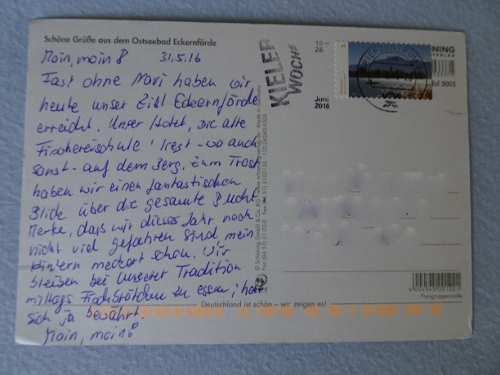 Schöne Grüße aus dem Ostseebad Eckernförde
Moin, moin! 31.5.16
Fast ohne Navi haben wir
heute unser Ziel Eckernförde
erreicht. Unser Hotel, Die alte
Fischereischule' liegt - wo auch
sonst - auf dem Berg. Zum Trost
haben wir einen fantastischen
Blick über die gesamte Bucht
Merke, dass wir dieses Jahr noch
nicht viel gefahren sind mein
Hintern meckert schon. Wir
bleiben bei unserer Tradition
mittags Fischbrötchen zu essen; hat
sich ja bewährt.
Moin, moin!
KIELER
WOCHE
18-
26
Juni
2016
NING
Deutschland ist schön – wir zeigen es!